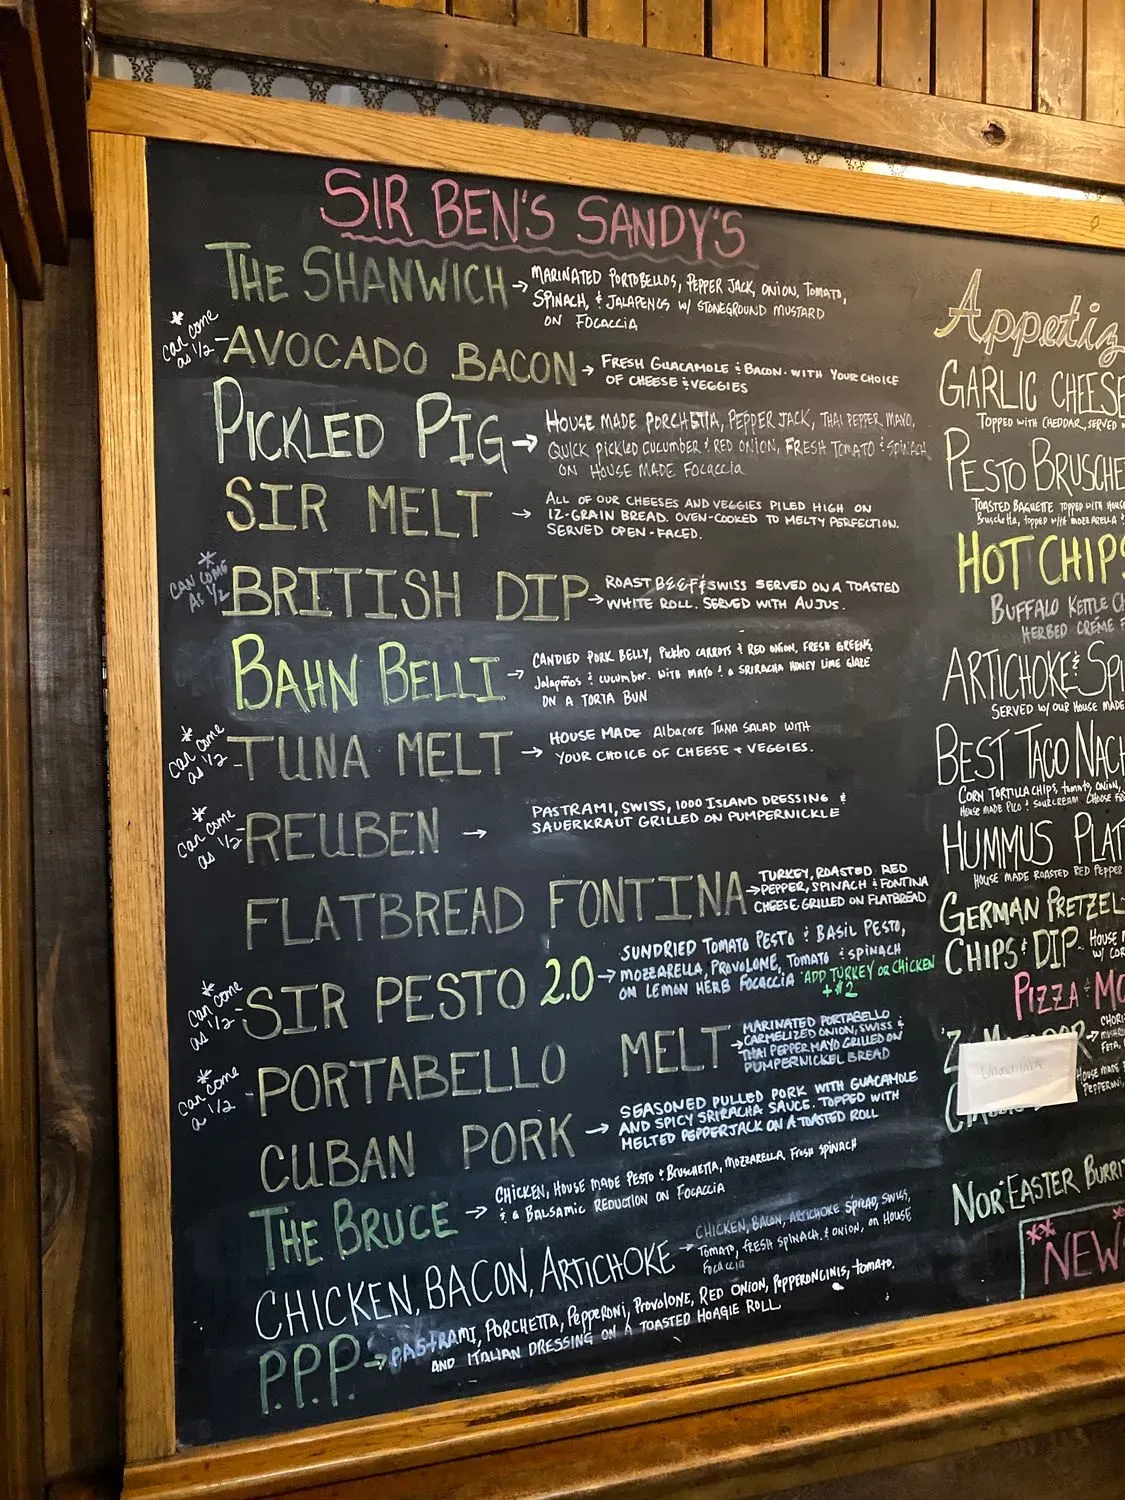 SIR BEN'S SANDY'S
THE SHANWICH → MARINATED PORTOBELLOS, PEPPER JACK, ONION, TOMATO,
SPINACH, & JALAPENOS W/ STONEGROUND MUSTARD
ON FOCACCIA
* can come as 1/2 - AVOCADO BACON → FRESH GUACAMOLE & BACON. WITH YOUR CHOICE
OF CHEESE & VEGGIES
PICKLED PIG → HOUSE MADE PORCHETTA, PEPPER JACK, THAI PEPPER MAYO,
QUICK PICKLED CUCUMBER & RED ONION, FRESH TOMATO & SPINACH
ON HOUSE MADE FOCACCIA
SIR MELT → ALL OF OUR CHEESES AND VEGGIES PILED HIGH ON
12-GRAIN BREAD. OVEN-COOKED TO MELTY PERFECTION.
SERVED OPEN-FACED.
* CAN COME AS 1/2 BRITISH DIP → ROAST BEEF & SWISS SERVED ON A TOASTED
WHITE ROLL. SERVED WITH AUJUS.
BAHN BELLI → CANDIED PORK BELLY, PICKLED CARROTS & RED ONION, FRESH GREENS,
Jalapeños & CUCUMBER. WITH MAYO & A SRIRACHA HONEY LIME GLAZE
ON A TORTA BUN
* can come as 1/2 - TUNA MELT → HOUSE MADE Albacore TUNA SALAD WITH
YOUR CHOICE OF CHEESE + VEGGIES.
* can come as 1/2 - REUBEN → PASTRAMI, SWISS, 1000 ISLAND DRESSING &
SAUERKRAUT GRILLED ON PUMPERNICKLE
FLATBREAD FONTINA → TURKEY, ROASTED RED
PEPPER, SPINACH & FONTINA
CHEESE GRILLED ON FLATBREAD
* can come as 1/2 - SIR PESTO 2.0 → SUNDRIED TOMATO PESTO & BASIL PESTO,
MOZZARELLA, PROVOLONE, TOMATO & SPINACH
ON LEMON HERB FOCACCIA *ADD TURKEY OR CHICKEN
+$2
* can come a 1/2 - PORTABELLO MELT → MARINATED PORTABELLO
CARMELIZED ONION, SWISS &
THAI PEPPER MAYO GRILLED ON
PUMPERNICKEL BREAD
CUBAN PORK → SEASONED PULLED PORK WITH GUACAMOLE
AND SPICY SRIRACHA SAUCE. TOPPED WITH
MELTED PEPPERJACK ON A TOASTED ROLL
THE BRUCE → CHICKEN, HOUSE MADE PESTO & BRUSCHETTA, MOZZARELLA, FRESH SPINACH
& a BALSAMIC REDUCTION ON FOCACCIA
CHICKEN, BACON, ARTICHOKE → CHICKEN, BACON, ARTICHOKE SPREAD, SWISS,
TOMATO, FRESH SPINACH, & ONION, ON HOUSE
FOCACCIA
P.P.P. → PASTRAMI, PORCHETTA, PEPPERONI, PROVOLONE, RED ONION, PEPPERONCINIS, TOMATO,
AND ITALIAN DRESSING ON A TOASTED HOAGIE ROLL
Appetiz
GARLIC CHEESE
TOPPED WITH CHEDDAR, SERVED
PESTO BRUSCHE
TOASTED BAGUETTE TOPPED WITH HOUSE
Bruschetta, TOPPED WITH MOZZARELLA &
HOT CHIPS
BUFFALO KETTLE CH
HERBED CREME F
ARTICHOKE & SPI
SERVED W/ OUR HOUSE MADE
BEST TACO NACH
CORN TORTILLA CHIPS, TOMATO, ONION,
HOUSE MADE PICO & SOURCREAM. CHOOSE
HUMMUS PLAT
HOUSE MADE ROASTED RED PEPPER
GERMAN PRETZEL
CHIPS & DIP - HOUSE M
W/ COR
PIZZA & MO
CHORI
FETA,
Unavailable
HOUSE MADE
PEPPERONI,
NOR'EASTER BURRIT
**NEW*